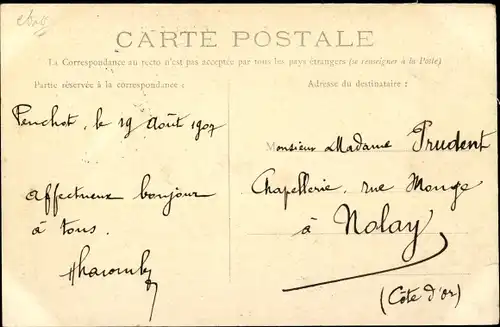 CARTE POSTALE
La Correspondance au recto n'est pas acceptée par tous les pays étrangers (se renseigner à la Poste)
Partie réservée à la correspondance :
Penchot, le 19 Août 1907
Affectueux bonjour
à tous.
Adresse du destinataire :
Monsieur Madame Prudent
Chapellerie, rue Monge
à Nolay
(Côte d'Or)